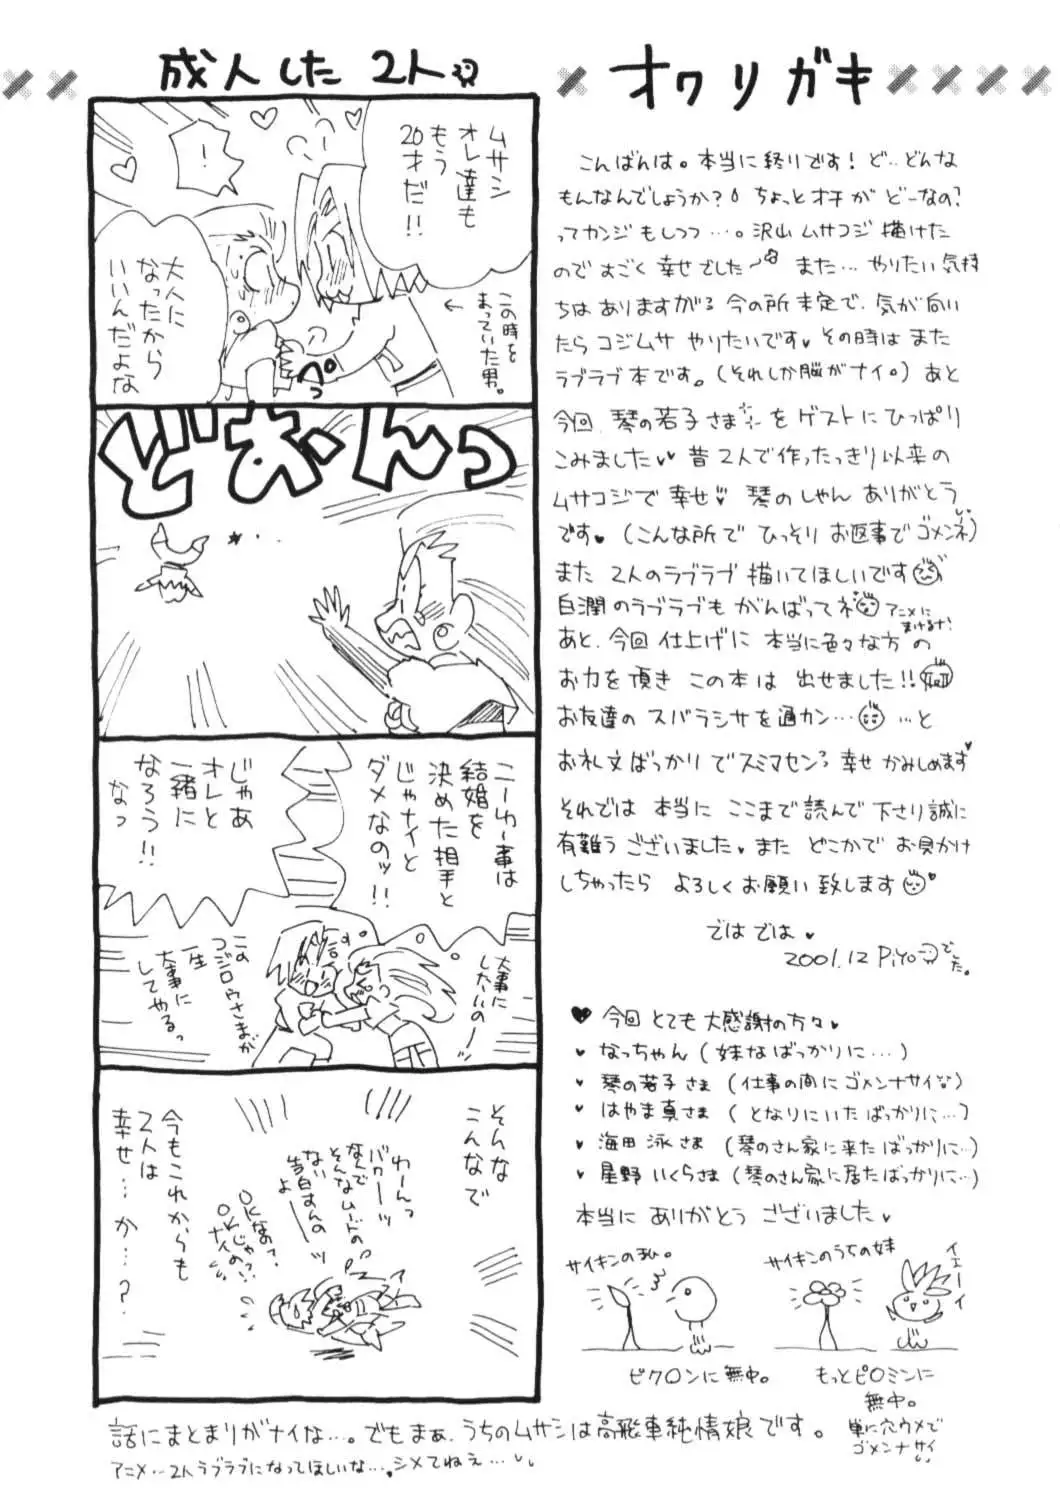 成人した2人
ムサシ
オレ達も
もう
20才だ!!
!
この時を
まっていた男。
大人に
なったから
いいんだよな
ぺっ
どおーんっ
こーゆー事は
結婚を
決めた相手と
じゃナイと
ダメなのッ!!
じゃあ
オレと
一緒に
なろう!!
なっ
大事に
したいのーー
この
コジロウさまが
一生
大事に
してやるっ
そんな
こんなで
わーんっ
バカーーッ
なんで
そんなムードの
ない告白すんの
よーーッ
OKなの?、
OKじゃ
ナイの!?
今もこれからも
2人は
幸せ…か…?
話にまとまりがナイな…。でもまぁ、うちのムサシは高飛車純情娘です。
アニメ…2人ラブラブになってほしいな…。シメてねぇ…
オワリガキ
こんばんは。本当に終りです! ど…どんな
もんなんでしょうか? ちょっとオチが どーなの?
ってカンジもしつつ…。沢山 ムサコジ 描けた
ので すごく 幸せでした〜 また… やりたい気持
ちは ありますがる 今の所 未定で、気が向い
たら コジムサ やりたいです♥ その時は また
ラブラブ本です。(それしか脳がナイ。) あと
今回、琴の若子さまを ゲストに ひっぱり
こみました♥♥ 昔 2人で作ったっきり以来の
ムサコジで 幸せ♥ 琴のしゃん ありがとう
です♥ (こんな所で ひっそり お返事で ゴメンネ)
また 2人のラブラブ 描いてほしいです
白潤のラブラブも がんばってネ アニメに
まけるな!
あと、今回 仕上げに 本当に色々な方の
お力を頂き この本は 出せました!!
お友達の スバラシサを 通カン… …と
お礼文ばっかり でスミマセンる 幸せ かみしめます♥
それでは 本当に ここまで 読んで 下さり 誠に
有難う ございました♥ また どこかで お見かけ
しちゃったら よろしくお願い 致します♥
ではでは♥
2001.12 Piyoでした。
♥ 今回 とても 大感謝の方々♥
♥ なっちゃん (妹なばっかりに…)
♥ 琴の若子さま (仕事の間に ゴメンナサイ)
♥ はやま真さま (となりにいたばっかりに…)
♥ 海田 泳さま (琴のさん家に来たばっかりに…)
♥ 星野 いくらさま (琴のさん家に居たばっかりに…)
本当に ありがとう ございました♥
サイキンの私。
ピク〇ンに無中。
サイキンのうちの妹
イエーイ
もっとピ〇ミンに
無中。
単に穴ウメで
ゴメンナサイ